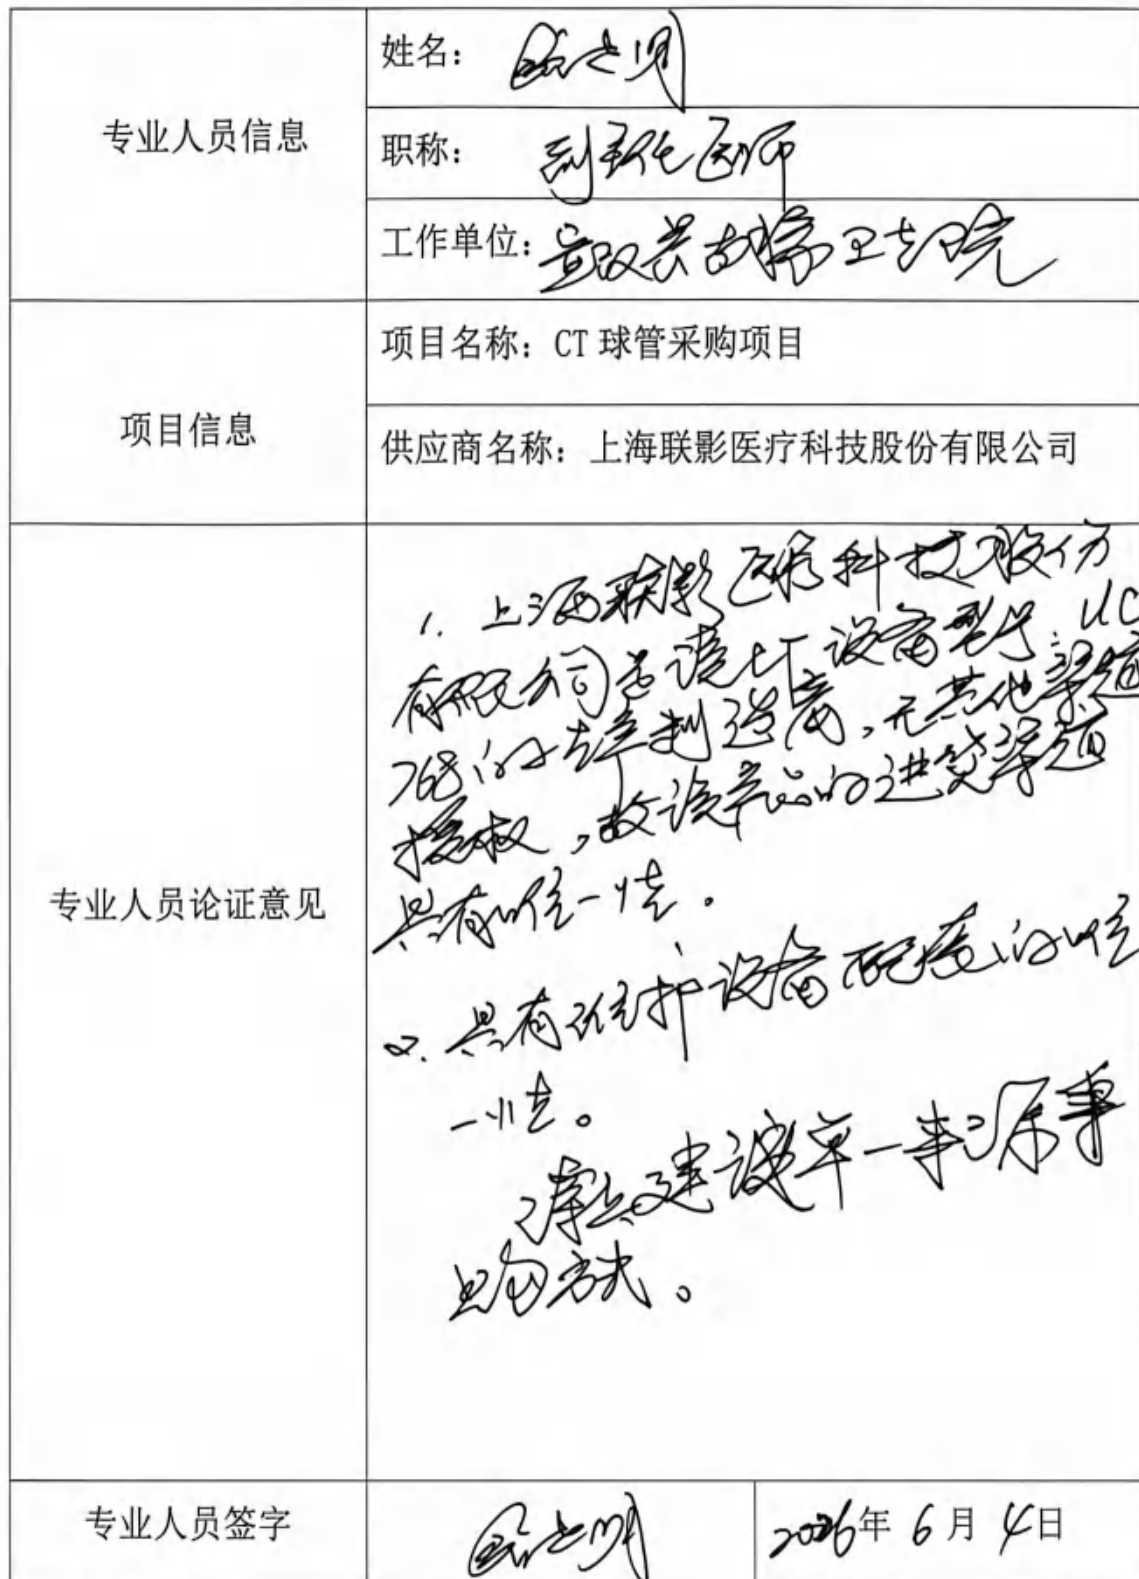 专业人员信息
姓名：
职称：副主任医师
工作单位：卫生院
项目信息
项目名称：CT 球管采购项目
供应商名称：上海联影医疗科技股份有限公司
专业人员论证意见
1. 上海联影医疗科技股份
有限公司是该CT设备型号：UC
768的生产制造商，无其他渠道
授权，故该产品的进货渠道
具有唯一性。
2. 具有维护设备配套的唯
一性。
建议单一来源采
购方式。
专业人员签字
2026年 6月 4日